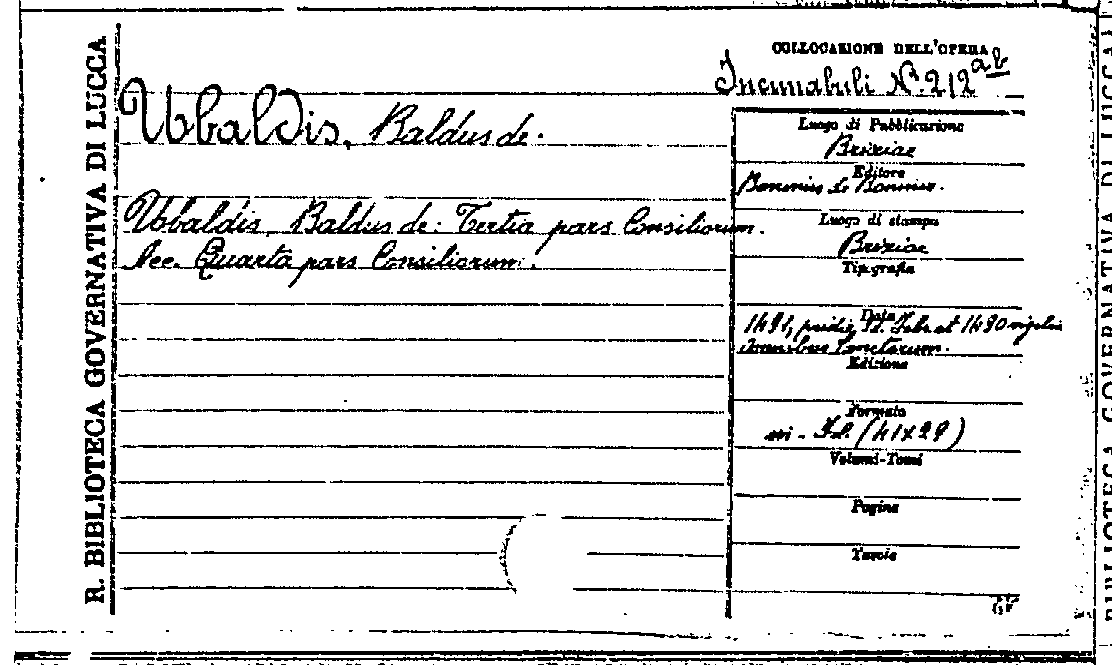 R. BIBLIOTECA GOVERNATIVA DI LUCCA
COLLOCAZIONE DELL'OPERA
Incunabuli N. 212 ab
Ubaldis, Baldus de.
Ubaldis, Baldus de: Tertia pars Consiliorum.
Quarta pars Consiliorum.
Luogo di Pubblicazione
Brixiae
Editore
Boninus de Boninis.
Luogo di stampa
Brixiae
Tipografia
Data
1491, pridie Feb. et 1490 vigilia
omnibus Sanctorum.
Edizione
Formato
in-Fol. (41x29)
Volumi-Tomi
Pagine
Tavole